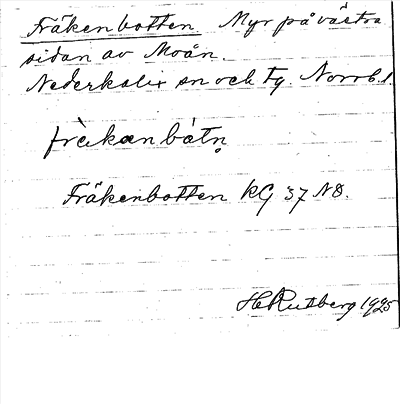 Fräkenbotten Myr på västra
sidan av Moån.
Nederkalix sn och tg. Norrb. l.
frèkanbátn̥
Fräkenbotten KG 37 NO.
H Rutberg 1925